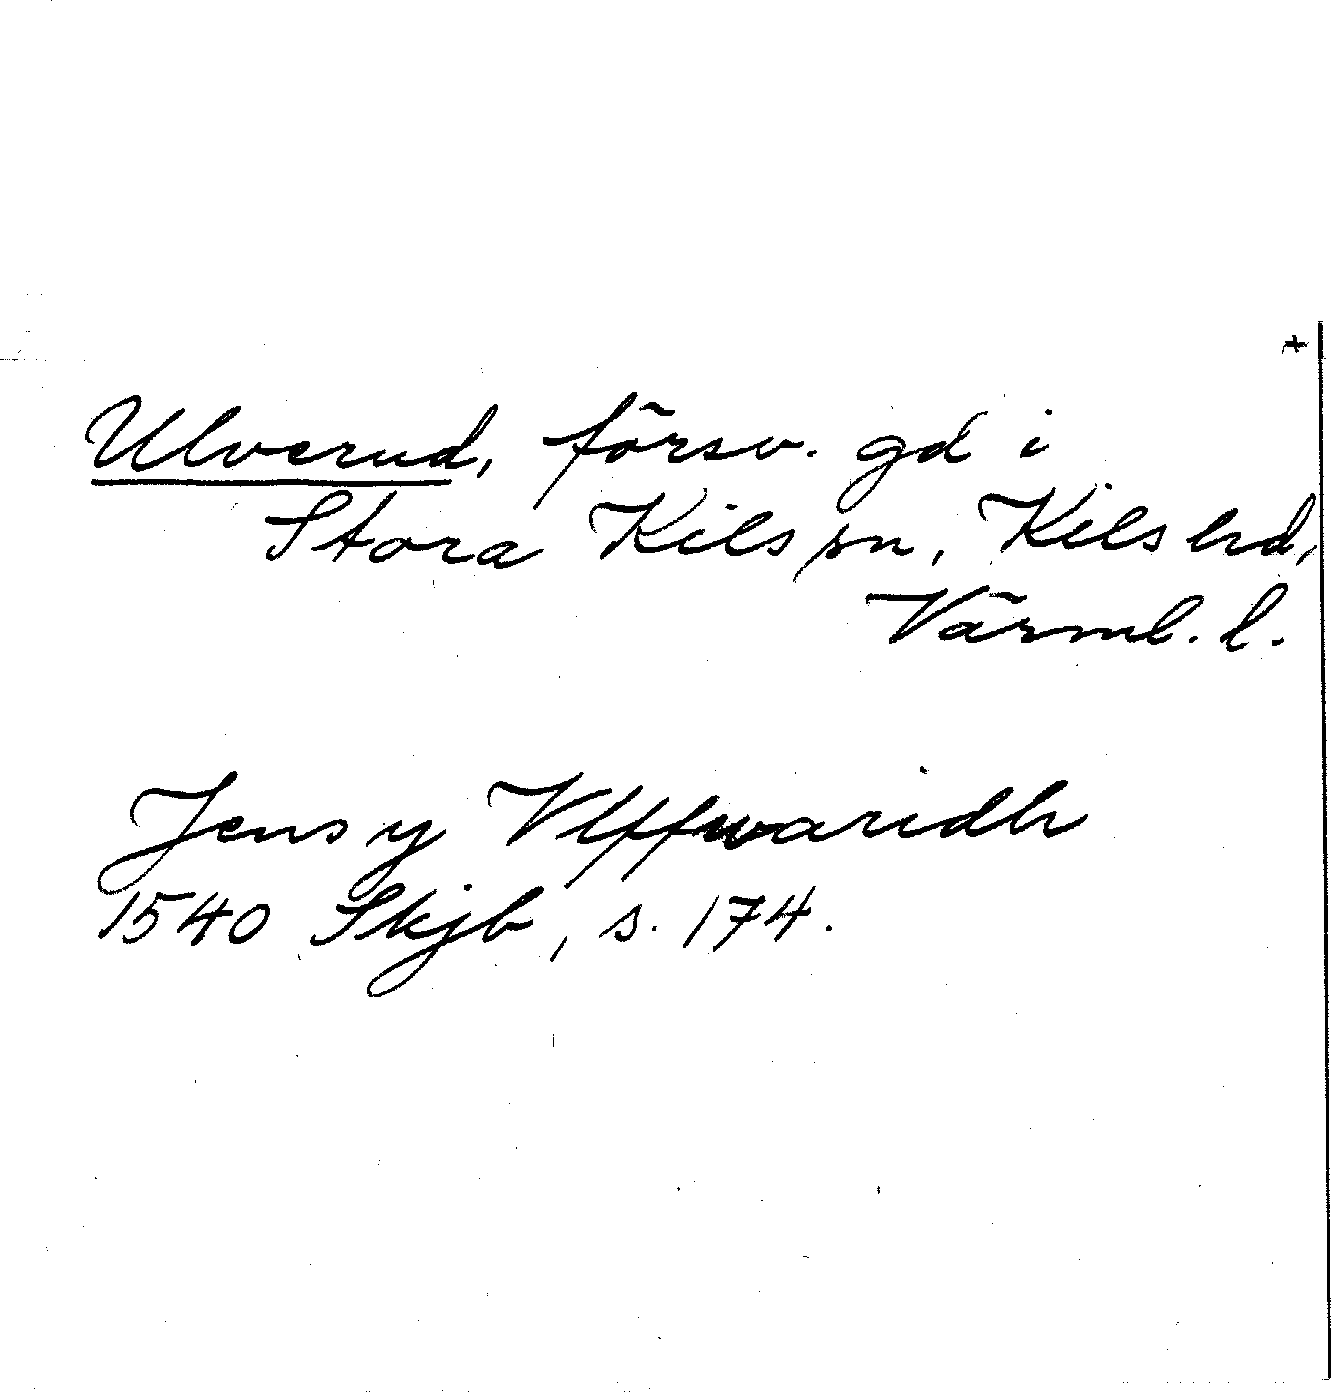 +
Ulverud, försv. gd i
Stora Kils sn, Kils hd,
Värml. l.
Jens y Vlffwaridh
1540 Skjb, s. 174.